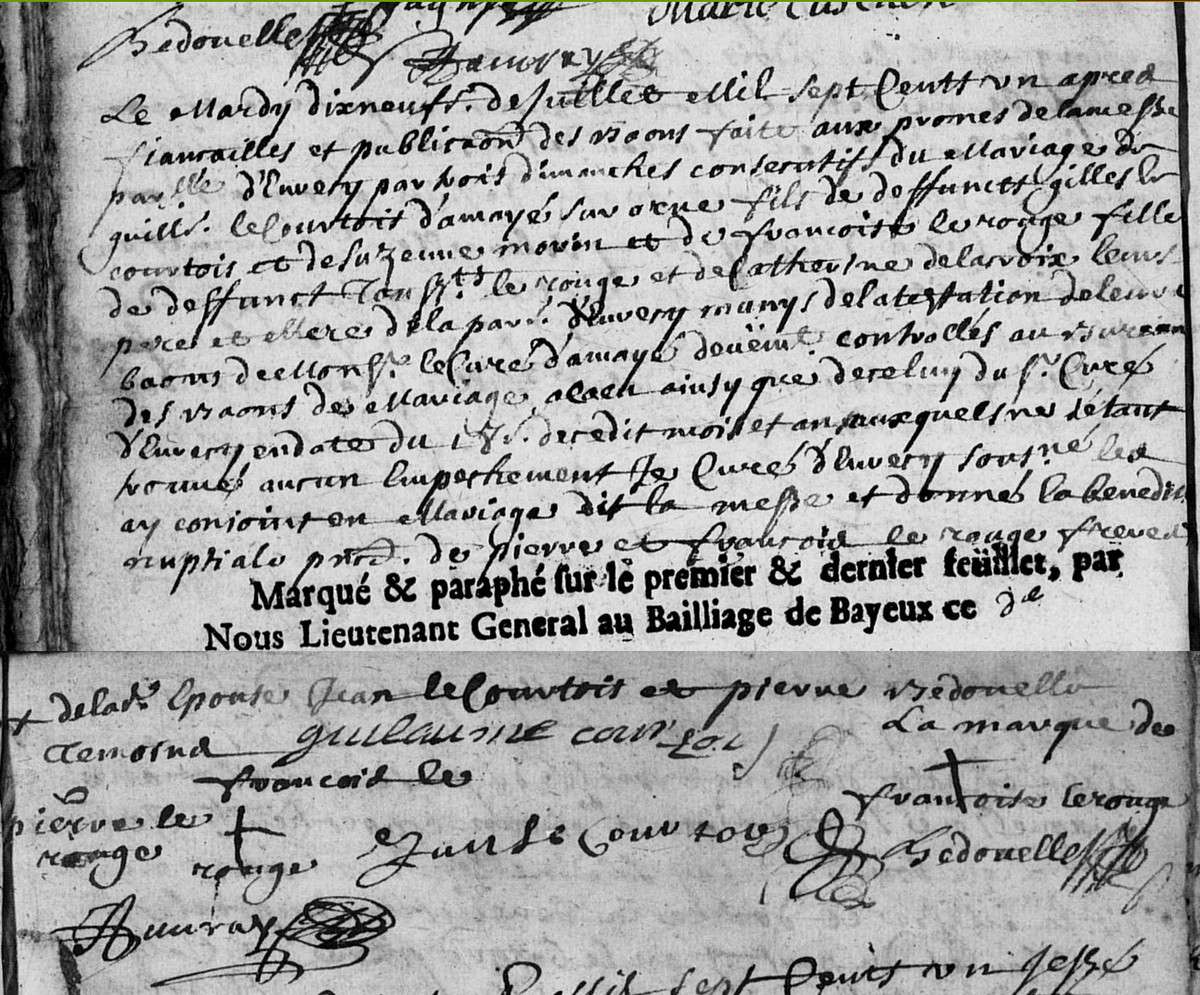 Marie
hedouelle
Hauvray
Le Mardy dixneufs.e de Juillet Mil sept Centt un apres
fiancailles et publicaon des baons faite aux promes de la messe
par.lle d'Euvecy par trois dimanches consecutifs du Mariage de
guill. le Courtois d'amayé sur orne fils de deffuncts gilles le
courtois et de suzenne morin et de francoise le rouge fille
de deffunct le rouge et de Catherine delacroix leurs
pere et Mere de la par. d'Euvecy munys de latestation de leurs
baons de Mons.r le Curé d'amayé deuëint controllés au bureau
des baons de Mariage a Caen ainsy que de celuy du s.r Curé
d'Euvecy en date du 18. de cedit mois et an auxquels ne sétant
trouvé aucun Empeschement Je Curé d'Euvecy sous.né les
ay conjoint en Mariage dit la messe et donné la benedit
nuptiale de pierre et francois le rouge freres
Marqué & paraphé sur le premier & dernier feüillet, par
Nous Lieutenant General au Bailliage de Bayeux ce
de lad. Epouse Jean le Courtois et pierre hedouelle
temoins guillaume cour tois La marque de
francois le
pierre le francoise le rouge
rouge rouge Jean le Courtois hedouelle
Hauvray
Mil sept Centt un